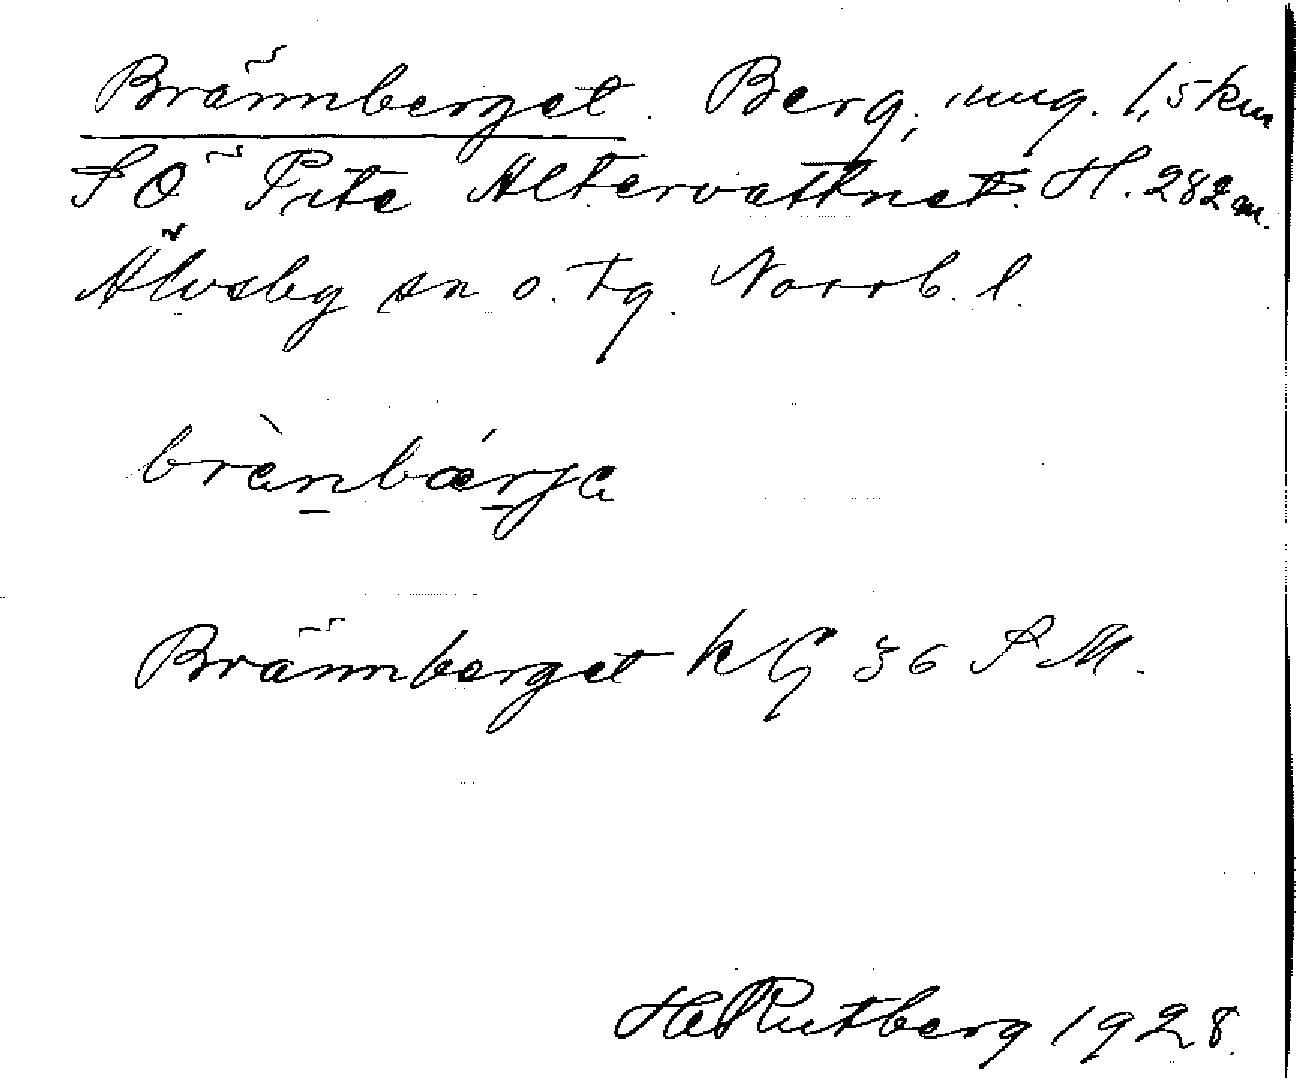 Brännberget. Berg, ung. 1,5 km
SÖ Pite Altervattnet. H. 282 m.
Älvsby sn o. tg. Norrb. l.
brànbǽrja
Brännberget kG 36 S M.
H Rutberg 1928.